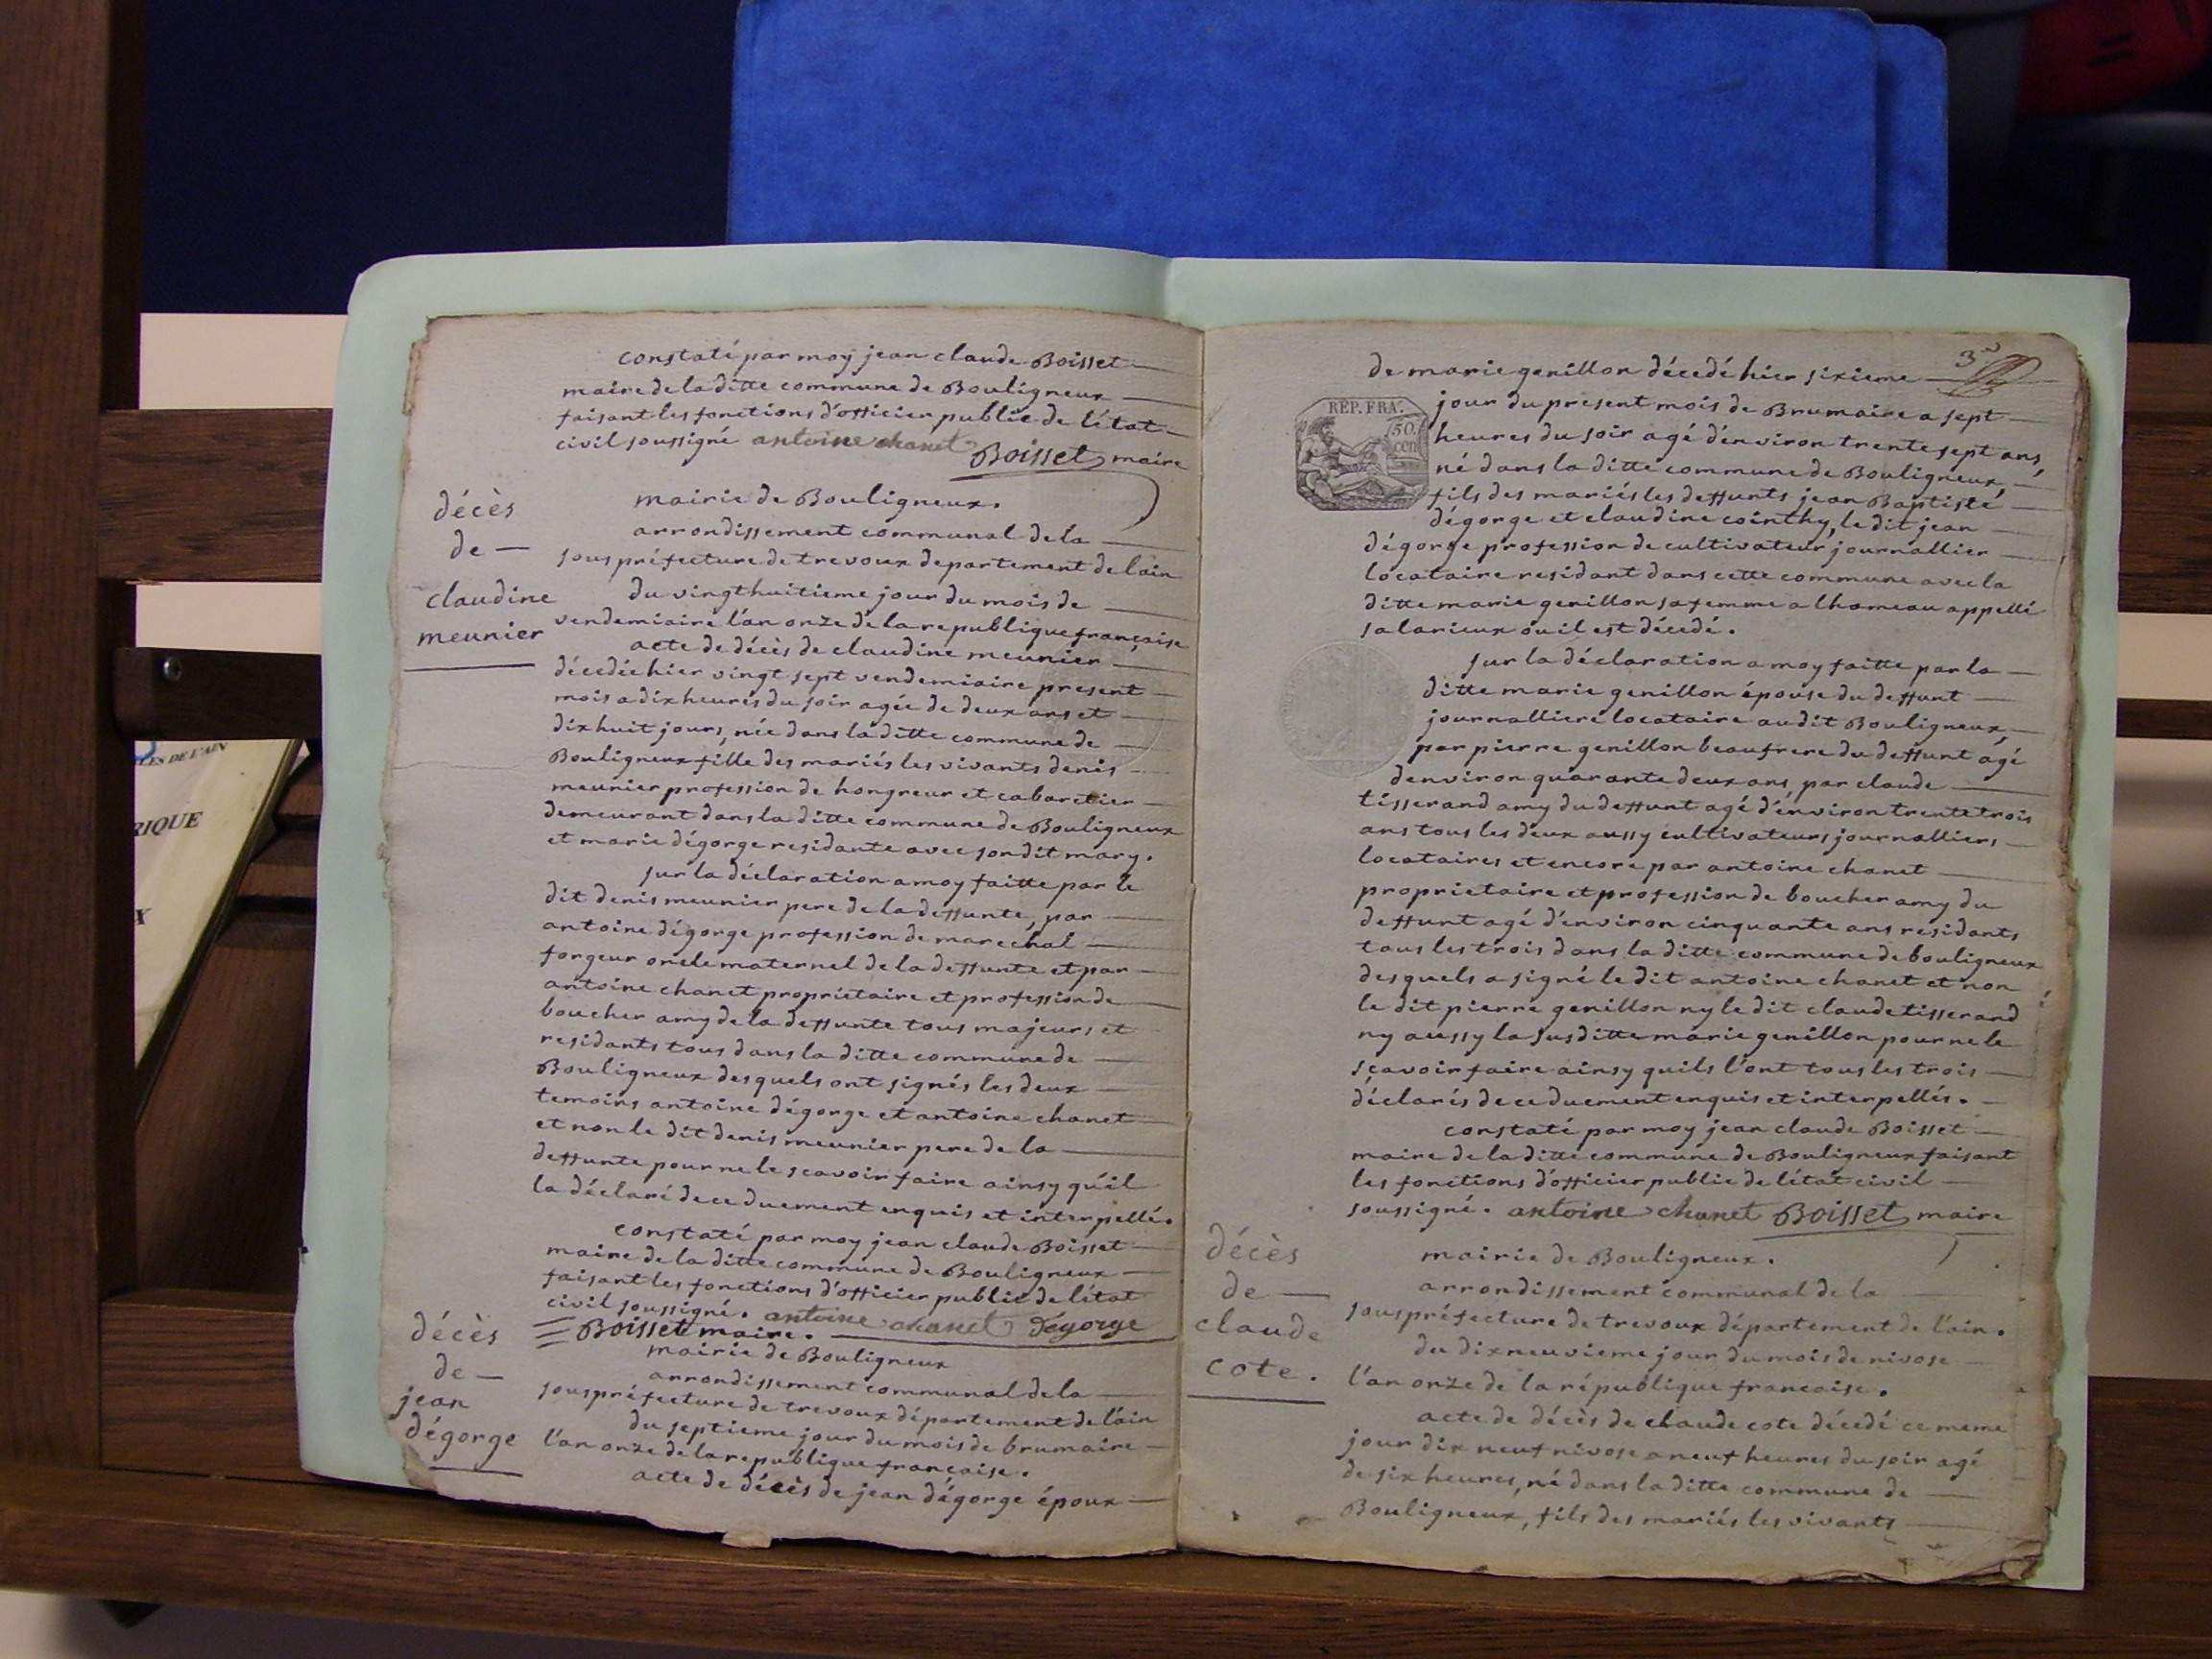 constaté par moy jean claude Boisset
maire de la ditte commune de Bouligneux
faisant les fonctions d'officier public de l'état
civil soussigné antoine chanet
Boisset maire
décès
de
claudine
meunier
mairie de Bouligneux.
arrondissement communal de la
souspréfecture de trevoux departement de lain
du vingthuitieme jour du mois de
vendemiaire l'an onze de la republique française
acte de décès de claudine meunier
décedée hier vingt sept vendemiaire present
mois a dix heures du soir agée de deux ans et
dixhuit jours, née dans la ditte commune de
Bouligneux fille des mariés les vivants denis
meunier profession de hongreur et cabaretier
demeurant dans la ditte commune de Bouligneux
et marie dégorge residante avec son dit mary.
sur la déclaration a moy faitte par le
dit denis meunier pere de la deffunte, par
antoine dégorge profession de marechal
forgeur oncle maternel de la deffunte et par
antoine chanet propriétaire et profession de
boucher amy de la deffunte tous majeurs et
residants tous dans la ditte commune de
Bouligneux desquels ont signés les deux
temoins antoine dégorge et antoine chanet
et non le dit denis meunier pere de la
deffunte pour ne le scavoir faire ainsy qu'il
la déclaré de ce duement enquis et interpellé.
constaté par moy jean claude Boisset
maire de la ditte commune de Bouligneux
faisant les fonctions d'officier public de l'état
civil soussigné. antoine chanet Degorge
Boisset maire.
décès
de
jean
dégorge
mairie de Bouligneux
arrondissement communal de la
souspréfecture de trevoux département de l'ain
du septieme jour du mois de brumaire
l'an onze de la republique française.
acte de décès de jean dégorge époux
3e
de marie genillon décedé hier sixieme
jour du present mois de Brumaire a sept
heures du soir agé d'environ trente sept ans,
né dans la ditte commune de Bouligneux,
fils des mariés les deffunts jean Baptiste
dégorge et claudine cointhy, le dit jean
dégorge profession de cultivateur journallier
locataire residant dans cette commune avec la
ditte marie genillon sa femme a lhameau appellé
salarieux ou il est décedé.
REP. FRA.
50.
cen
sur la déclaration a moy faitte par la
ditte marie genillon épouse du deffunt
journalliere locataire audit Bouligneux,
par pierre genillon beaufrere du deffunt agé
denviron quarante deux ans, par claude
tisserand amy du deffunt agé d'environ trente trois
ans tous les deux aussy cultivateurs journalliers
locataires et encore par antoine chanet
propriétaire et profession de boucher amy du
deffunt agé d'environ cinquante ans residants
tous les trois dans la ditte commune de bouligneux
desquels a signé le dit antoine chanet et non
le dit pierre genillon ny le dit claude tisserand
ny aussy la susditte marie genillon pour ne le
scavoir faire ainsy quils l'ont tous les trois
déclarés de ce duement enquis et interpellés.
constaté par moy jean claude Boisset
maire de la ditte commune de Bouligneux faisant
les fonctions d'officier public de l'état civil
soussigné. antoine chanet Boisset maire
décès
de
claude
cote.
mairie de Bouligneux.
arrondissement communal de la
souspréfecture de trevoux département de l'ain.
du dixneuvieme jour du mois de nivose
l'an onze de la république francaise.
acte de décès de claude cote décedé ce meme
jour dix neuf nivose a neuf heures du soir agé
de six heures, né dans la ditte commune de
Bouligneux, fils des mariés les vivants
ES DE L'AIN
RIQUE
X